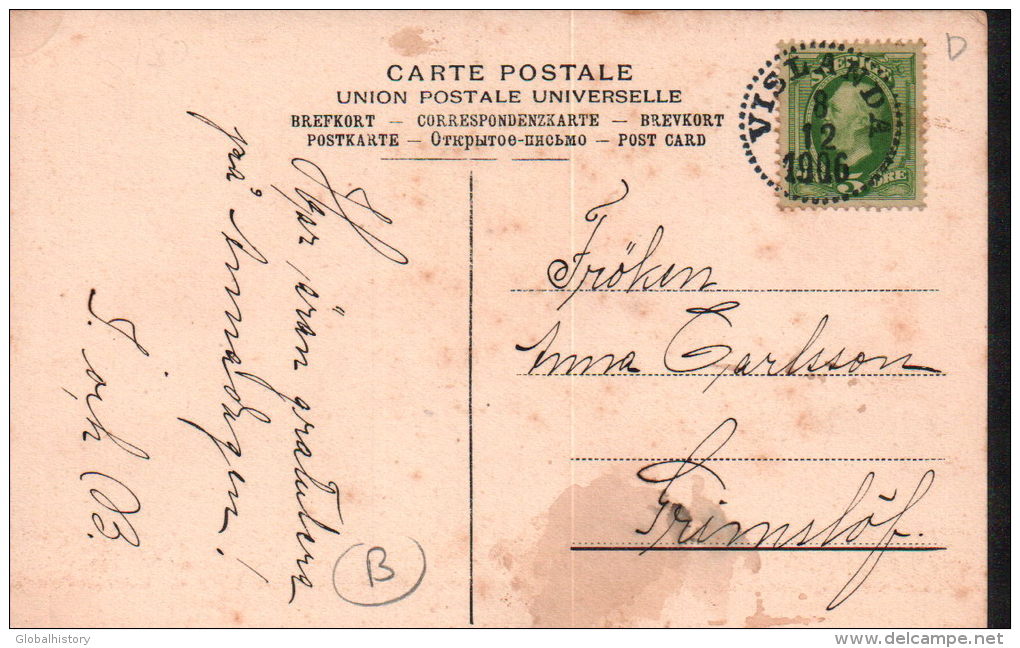 CARTE POSTALE
UNION POSTALE UNIVERSELLE
BREFKORT – CORRESPONDENZKARTE – BREVKORT
POSTKARTE – Открытое-письмо – POST CARD
VISLANDA
8
12
1906
SVERIGE
5 ÖRE
D
Har äran gratulera
på Annadagen!
S. och B.
Fröken
Anna Carlsson
Grimslöf.
B
Globalhistory
www.delcampe.net